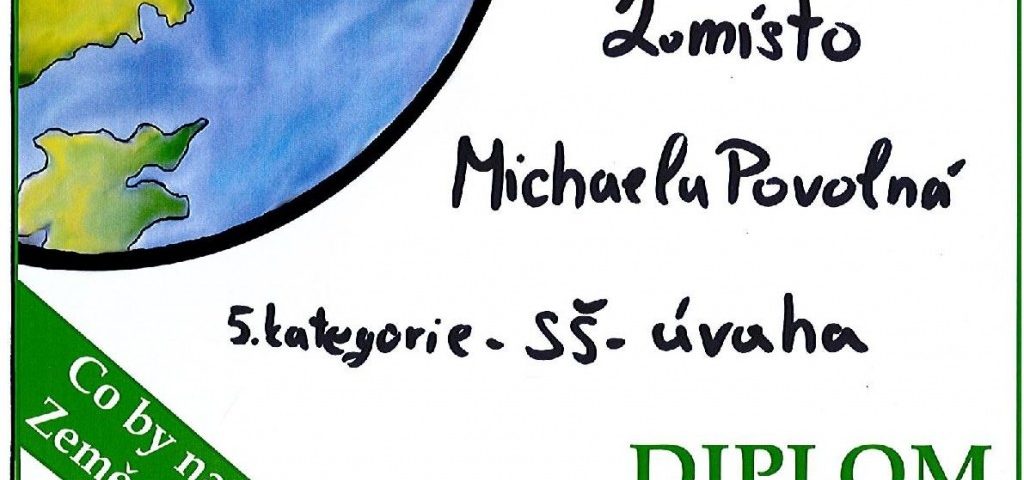 2.místo
Michaela Povolná
5.kategorie - SŠ - úvaha
Co by na
Země
DIPLOM